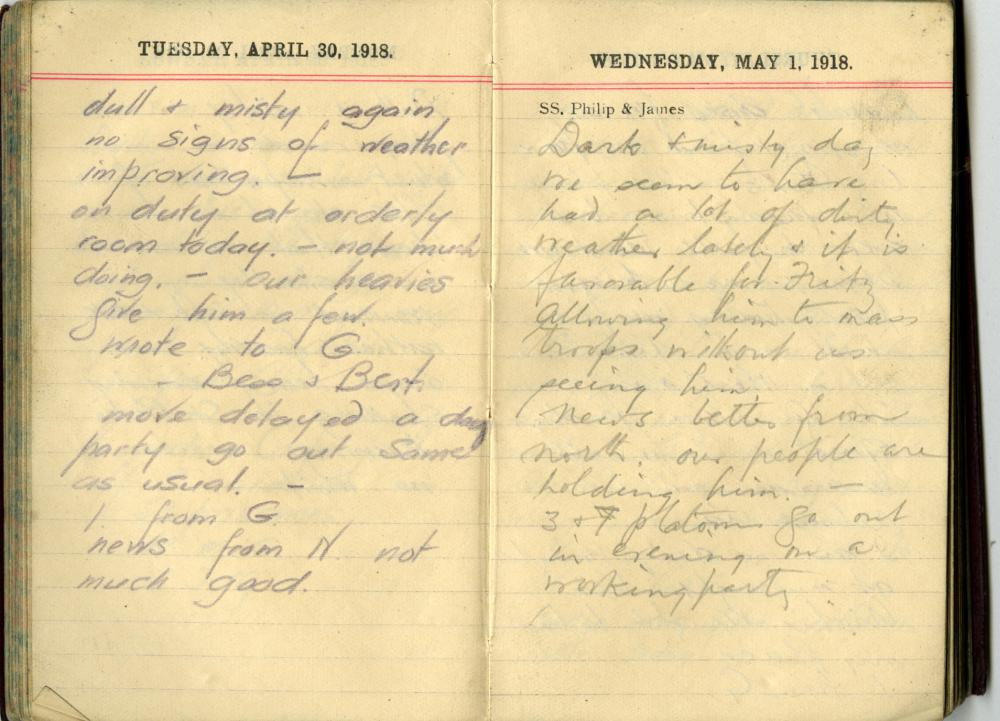 TUESDAY, APRIL 30, 1918.
dull + misty again
no signs of weather
improving. —
on duty at orderly
room today. — not much
doing. — our heavies
give him a few.
wrote to G
- Bess & Bert,
move delayed a day
party go out Same
as usual. —
1 from G.
news from N. not
much good.
WEDNESDAY, MAY 1, 1918.
SS. Philip & James
Dark & misty day
we seem to have
had a lot of dirty
weather lately & it is
favorable for Fritz
allowing him to mass
troops without us
seeing him.
News better from
north. our people are
holding him. —
3 & 7 platoons go out
in evening on a
working party